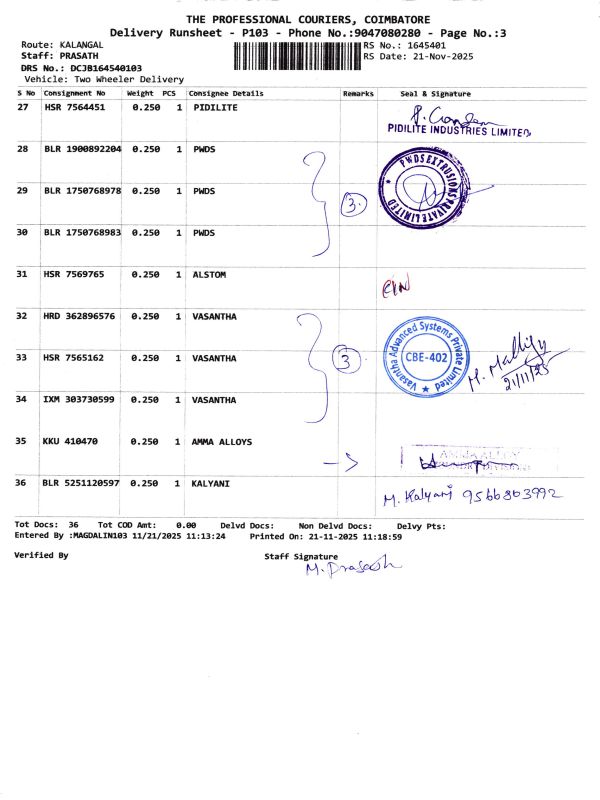 THE PROFESSIONAL COURIERS, COIMBATORE
Delivery Runsheet - P103 - Phone No.:9047080280 - Page No.:3
Route: KALANGAL RS No.: 1645401
Staff: PRASATH RS Date: 21-Nov-2025
DRS No.: DCJB164540103
Vehicle: Two Wheeler Delivery
S No Consignment No Weight PCS Consignee Details Remarks Seal & Signature
27 HSR 7564451 0.250 1 PIDILITE
PIDILITE INDUSTRIES LIMITED
28 BLR 1900892204 0.250 1 PWDS
PWDS EXTRUSIONS PRIVATE LIMITED
29 BLR 1750768978 0.250 1 PWDS 3
30 BLR 1750768983 0.250 1 PWDS
31 HSR 7569765 0.250 1 ALSTOM
32 HRD 362896576 0.250 1 VASANTHA
Vasantha Advanced Systems Private Limited
CBE-402
33 HSR 7565162 0.250 1 VASANTHA 3
M. Mallify
21/11/25
34 IXM 303730599 0.250 1 VASANTHA
35 KKU 410470 0.250 1 AMMA ALLOYS
36 BLR 5251120597 0.250 1 KALYANI
M. Kalyani 9566863992
Tot Docs: 36 Tot COD Amt: 0.00 Delvd Docs: Non Delvd Docs: Delvy Pts:
Entered By :MAGDALIN103 11/21/2025 11:13:24 Printed On: 21-11-2025 11:18:59
Verified By Staff Signature
M. Prasath